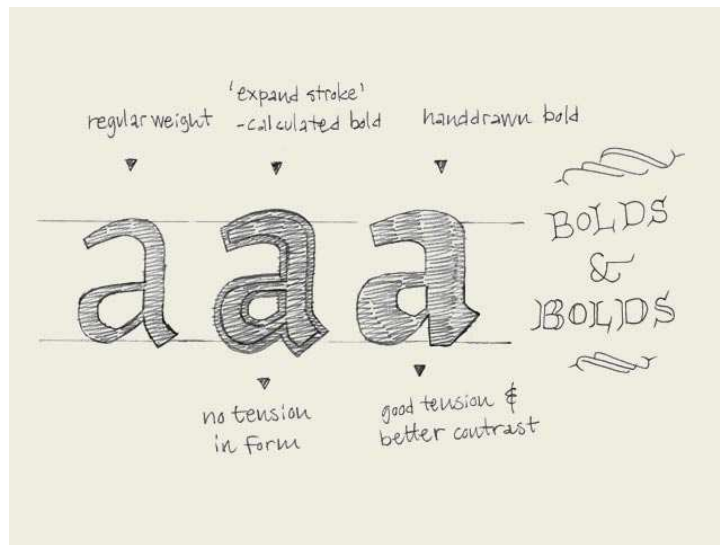 regular weight
'expand stroke'
-calculated bold
handdrawn bold
a a a
no tension
in form
good tension &
better contrast
BOLDS
&
BOLDS